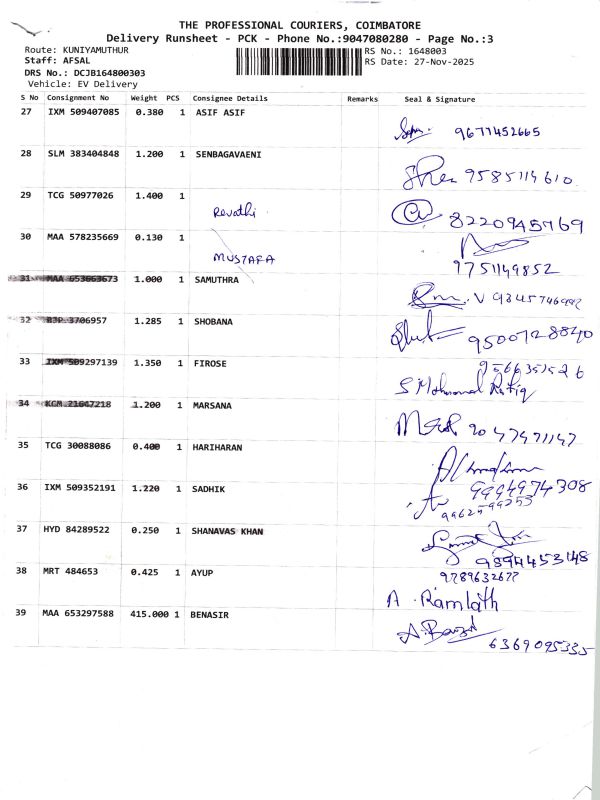 THE PROFESSIONAL COURIERS, COIMBATORE
Delivery Runsheet - PCK - Phone No.:9047080280 - Page No.:3
Route: KUNIYAMUTHUR RS No.: 1648003
Staff: AFSAL RS Date: 27-Nov-2025
DRS No.: DCJB164800303
Vehicle: EV Delivery
S No Consignment No Weight PCS Consignee Details Remarks Seal & Signature
27 IXM 509407085 0.380 1 ASIF ASIF
9677452665
28 SLM 383404848 1.200 1 SENBAGAVAENI
9585114610
29 TCG 50977026 1.400 1
Revathi
8220945769
30 MAA 578235669 0.130 1
MUSTAFA
9751149852
31 MAA 653663673 1.000 1 SAMUTHRA
32 BJP 3706957 1.285 1 SHOBANA
9500728840
33 IXM 509297139 1.350 1 FIROSE
9566351526
34 KGM 21647218 1.200 1 MARSANA
9047471147
35 TCG 30088086 0.400 1 HARIHARAN
36 IXM 509352191 1.220 1 SADHIK
9994974308
37 HYD 84289522 0.250 1 SHANAVAS KHAN
9894453148
38 MRT 484653 0.425 1 AYUP
9789632677
A. Ramlath
39 MAA 653297588 415.000 1 BENASIR
6369095335